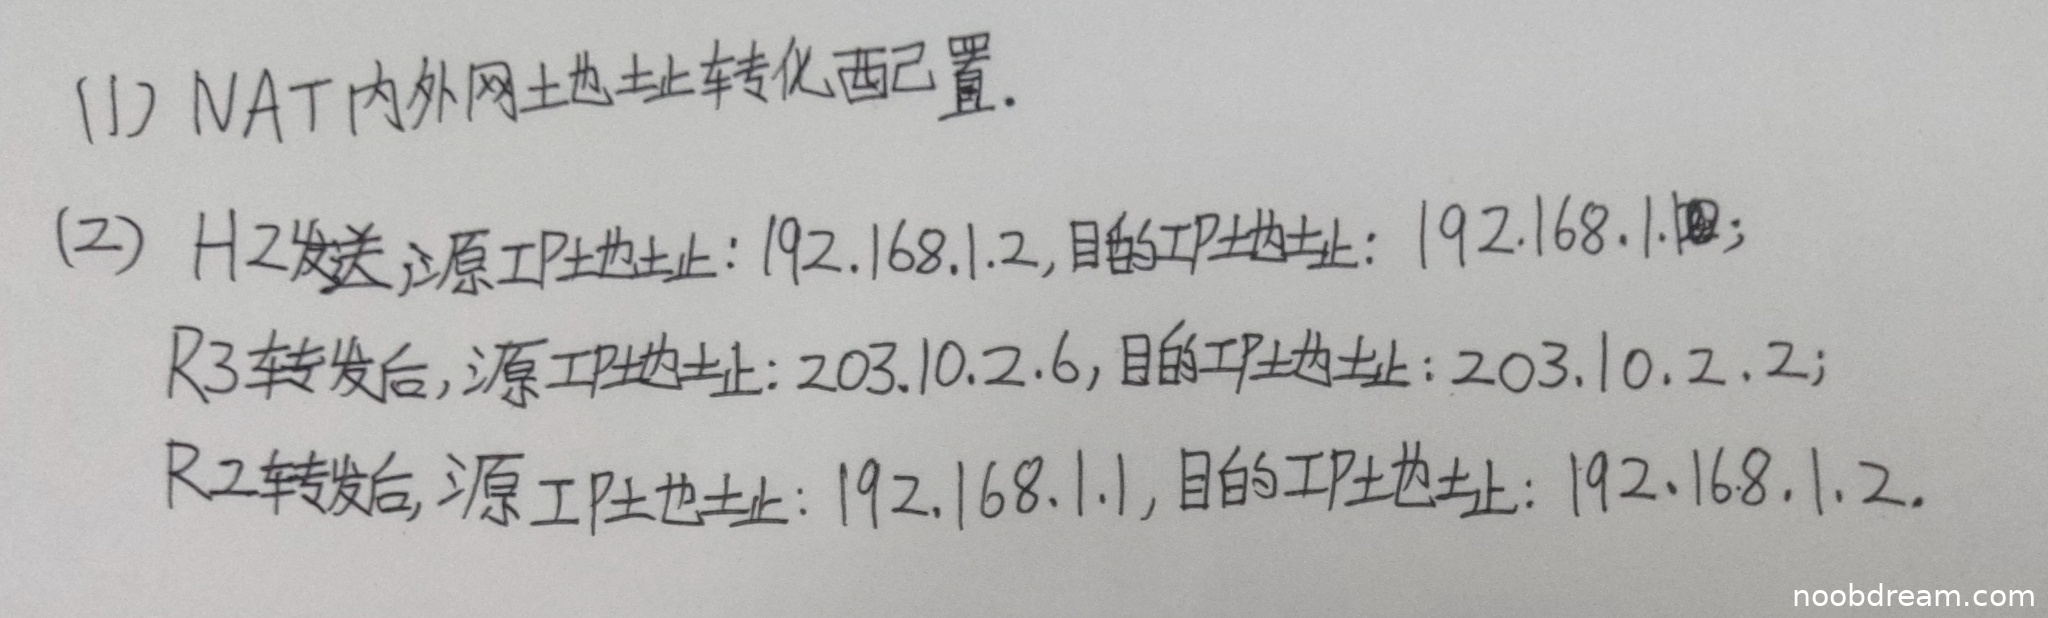 (1) NAT内外网地址转化配置.
(2) H2发送,源IP地址:192.168.1.2,目的IP地址:192.168.1.1;
R3转发后,源IP地址:203.10.2.6,目的IP地址:203.10.2.2;
R2转发后,源IP地址:192.168.1.1,目的IP地址:192.168.1.2.
noobdream.com